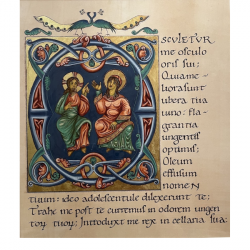 SCVLETVR
me osculo
oris sui:
Quia me-
liora sunt
ubera tua
uino: fla
grantia
ungentis
optimis:
Oleum
effusum
nomeN
tuum: ideo adolescentule dilexerunt te:
Trahe me post te curremus in odorem ungen
toꝝ tuoꝝ: Introduxit me rex in cellaria sua: